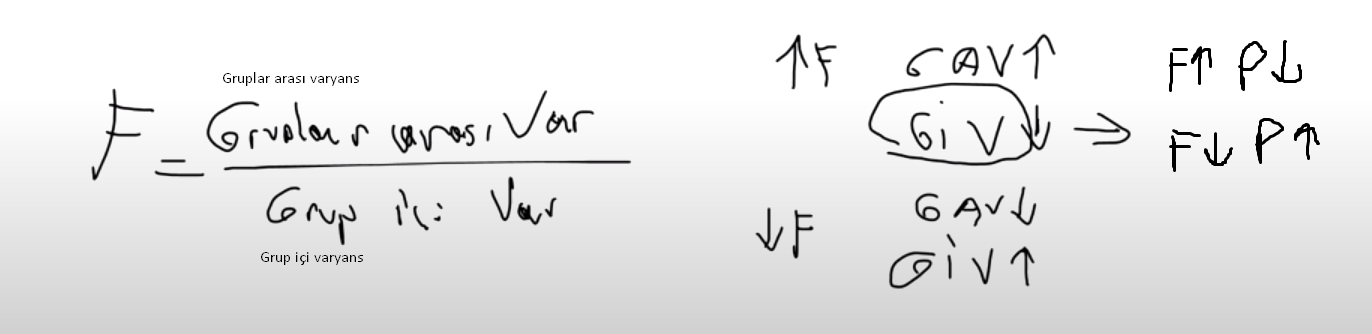 Gruplar arası varyans
F = Gruplar arası Var
Grup içi Var
Grup içi varyans
↑F GAV↑
GİV↓ ⇒
↓F GAV↓
GİV↑
F↑ P↓
F↓ P↑